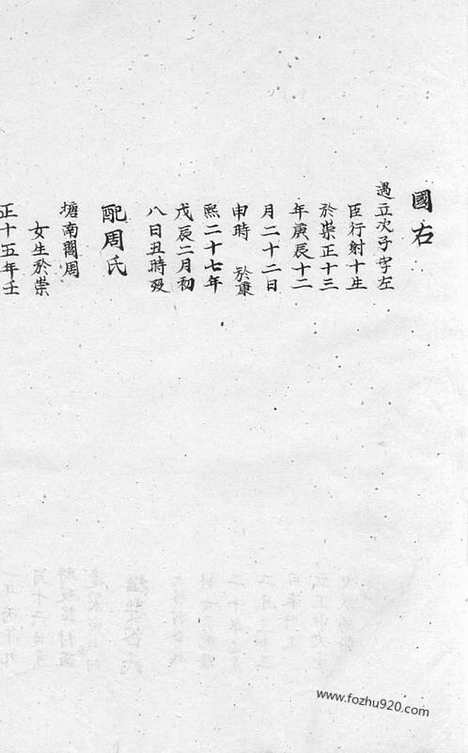 國右
遇立次子字左
臣行射十生
於崇正十三
年庚辰十二
月二十二日
申時 於康
熙二十七年
戊辰二月初
八日丑時歿
配周氏
塘南閣周
女生於崇
正十五年壬
www.fozhu920.com